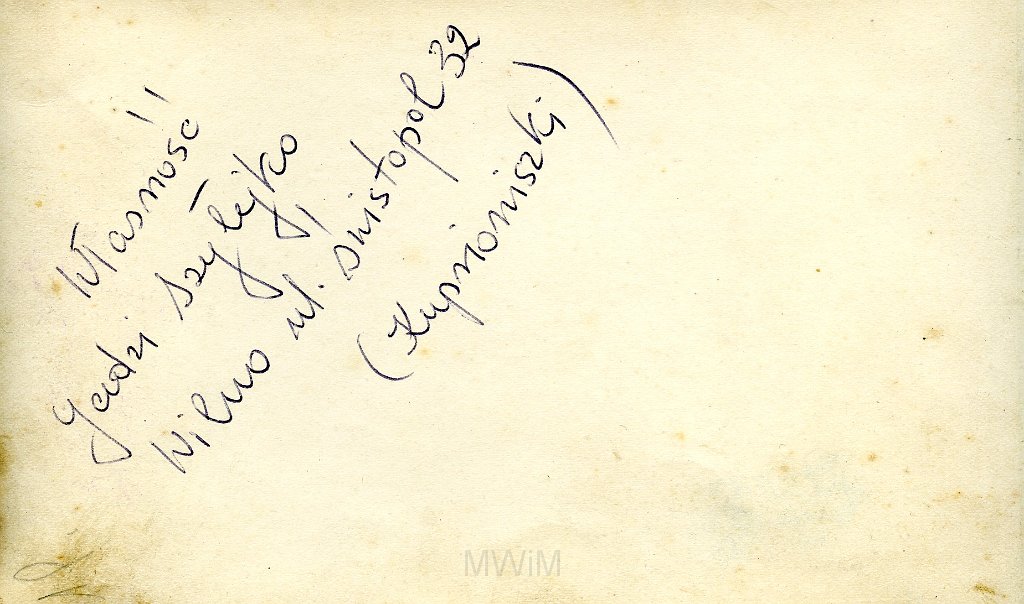 Własność
Jadzi Szyłejko
Wilno ul. Śnistopol 32
(Kuprioniszki)
MWiM